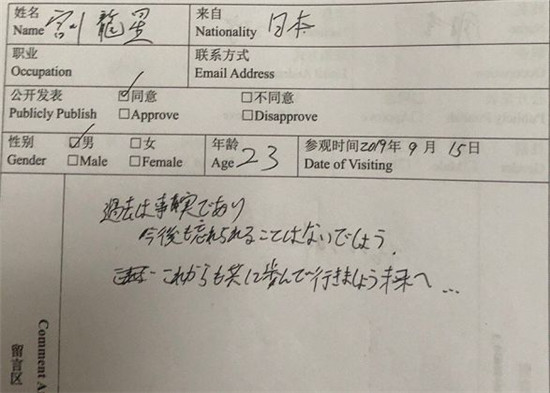 姓名 宮川 龍星 来自 日本
Name Nationality
职业 联系方式
Occupation Email Address
公开发表 ☑同意 □不同意
Publicly Publish □Approve □Disapprove
性别 ☑男 □女 年龄 23 参观时间 2019年 9月 15日
Gender □Male □Female Age Date of Visiting
過去は事実であり
今後も忘れられることはないでしょう.
これからも共に歩んで行きましょう未来へ...
Comment A
留言区